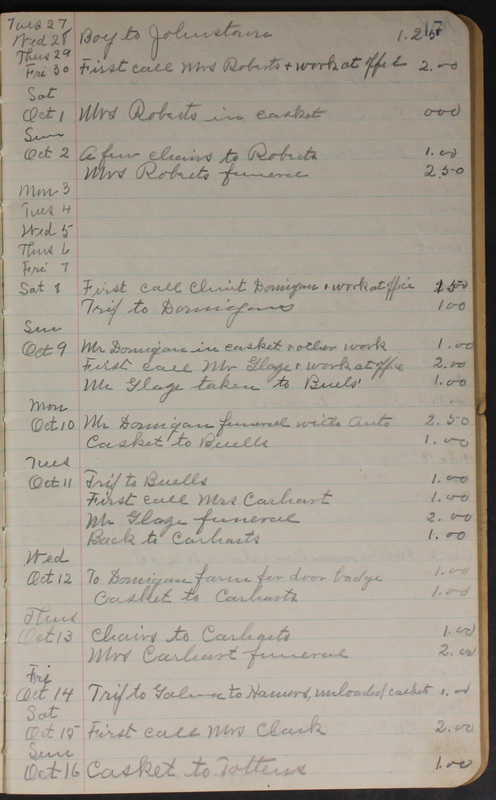 17
Tues 27
Wed 28 Boy to Johnstown 1.25
Thus 29
Fri 30 First call Mrs Roberts + work at office 2.00
Sat
Oct 1 Mrs Roberts in casket 000
Sun
Oct 2 A few chairs to Roberts 1.00
Mrs Roberts funeral 2.50
Mon 3
Tues 4
Wed 5
Thus 6
Fri 7
Sat 8 First call Clint Domigan + work at office 1.50
Trip to Domigans 1 00
Sun
Oct 9 Mr Domigan in casket + other work 1.00
First call Mr Glaze + work at office 2.00
Mr Glaze taken to Buels' 1.00
Mon
Oct 10 Mr Domigan funeral with auto 2.50
Casket to Buells 1.00
Tues
Oct 11 Trip to Buells 1.00
First call Mrs Carhart 1.00
Mr Glaze funeral 2.00
Back to Carharts 1.00
Wed
Oct 12 To Domigan farm for door badge 1.00
Casket to Carharts 1.00
Thus
Oct 13 Chairs to Carharts 1.00
Mrs Carhart funeral 2.00
Fri
Oct 14 Trip to Galena to Hamers, unloaded casket 1.00
Sat
Oct 15 First call Mrs Clark 2.00
Sun
Oct 16 Casket to Tottens 1.00